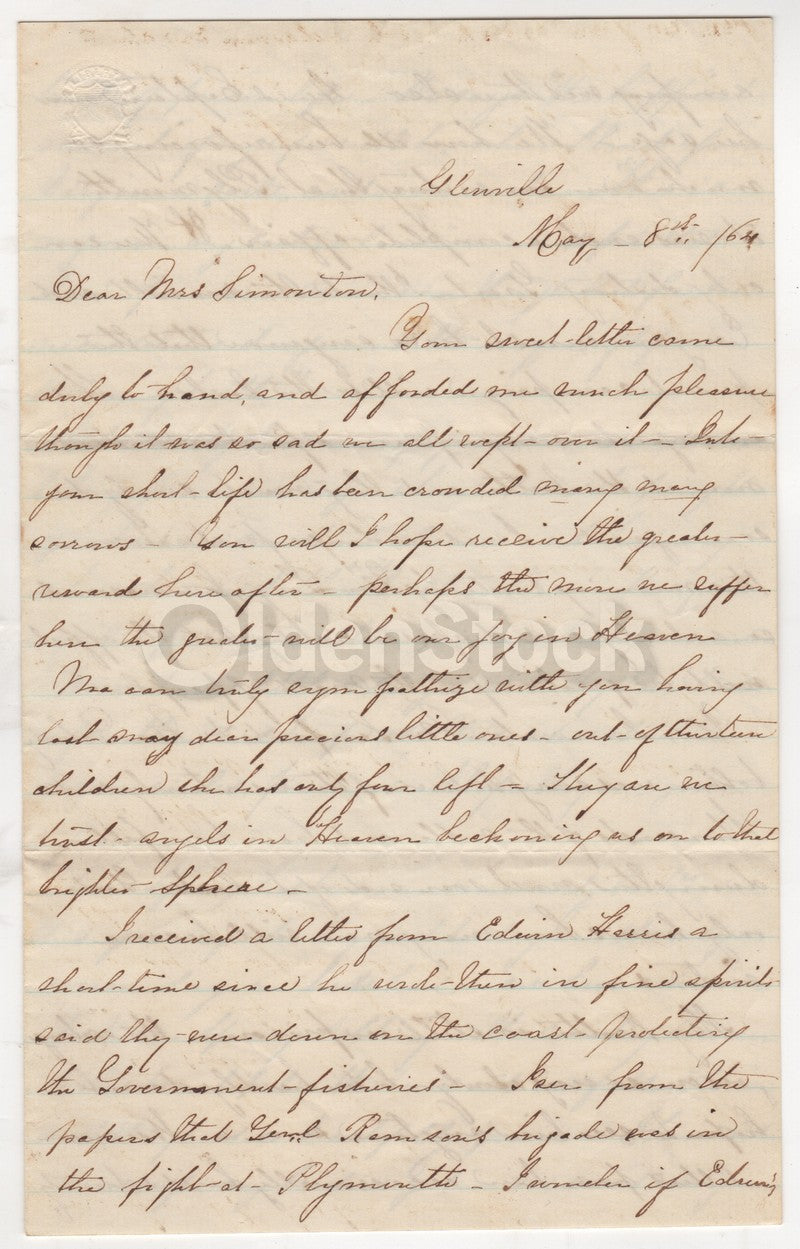 Glenville
May - 8th /64
Dear Mrs Simonton,
Your sweet letter came
duly to hand, and afforded me much pleasure
though it was so sad we all wept - over it -
your short - life has been crowded many many
sorrows - You will I hope receive the greater
reward here after - perhaps the more we suffer
here the greater will be our joy in Heaven
Ma can truly sympathize with you having
lost many dear precious little ones - out - of thirteen
children she has only four left - They are we
trust - angels in Heaven beckoning us on to that
brighter sphere -
I received a letter from Edwin Harris a
short - time since he wrote then in fine spirits
said they were down on the coast - protecting
the Government - fisheries - I see from the
papers that Genl Ramson's brigade was in
the fight - at - Plymouth - I wonder if Edwin's
OldenStock